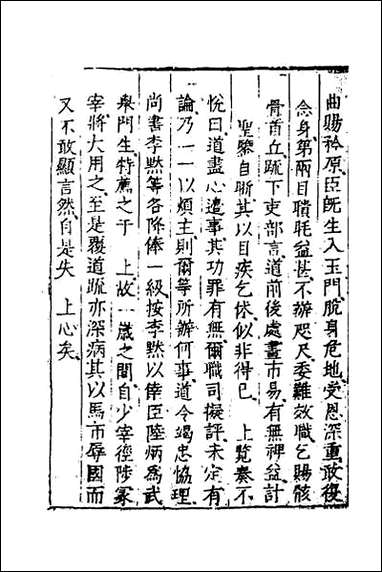 曲賜矜原臣旣生入玉門脫身危地受恩深重敢復
念身第兩目瞶眊益甚不辦咫尺委難效職乞賜骸
骨首丘疏下吏部言道前後處畫市易有無裨益計
聖鑒自晰其以目疾乞休似非得已　上覽奏不
悅曰道盡心邊事其功罪有無爾職司擬評未定有
論乃一一以煩主則爾等所辦何事道令竭忠協理
尚書李默等各降俸一級按李默以倖臣陸炳爲武
舉門生特薦之于　上故一歲之間自少宰徑陟冢
宰將大用之至是覆道疏亦深病其以馬市辱國而
又不敢顯言然自是失　上心矣